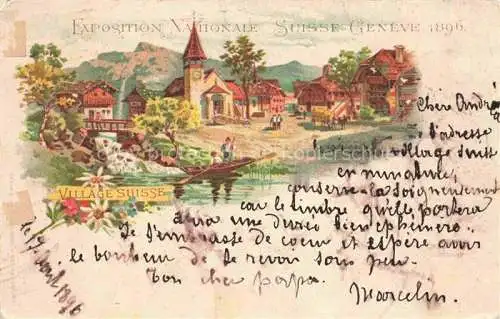 EXPOSITION NATIONALE SUISSE GENÈVE 1896.
Cher André
l'adresse
village suisse
en miniature
conserve-la soigneusement
car le timbre qu'elle portera
aura une durée bien éphémère.
Je t'embrasse de coeur et espère avoir
le bonheur de te revoir sous peu.
Ton cher papa
Marcelin.
VILLAGE SUISSE
1896